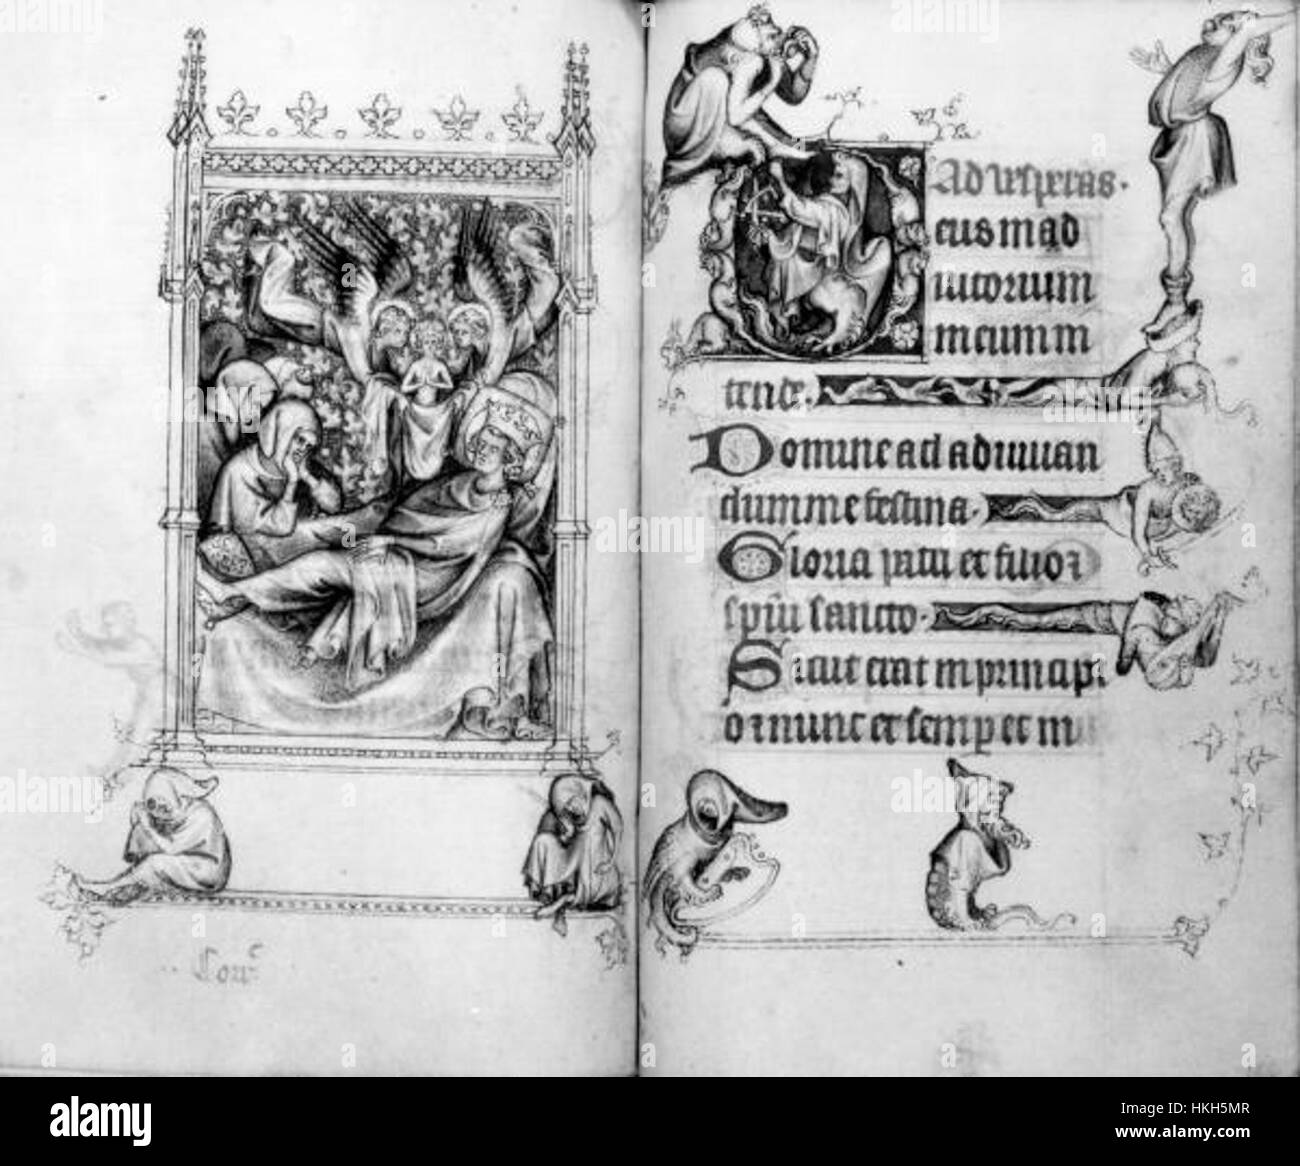 Ad vesperas.
eus in ad
iutorium
meum in
tende.
Domine ad adiuuan
dum me festina.
Gloria patri et filio
spiritui sancto.
Sicut erat in principi
o et nunc et semper et in
alamy
Image ID: HKH5MR
www.alamy.com